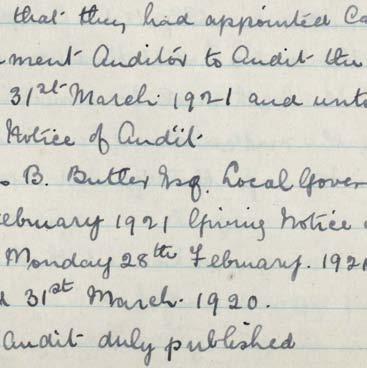 that they had appointed Ca
ment Auditor to Audit the
31st March 1921 and unto
Notice of Audit.
B. Butler Esq. Local Gover
ebruary 1921 Giving Notice
Monday 28th February. 1921
31st March. 1920.
Audit duly published